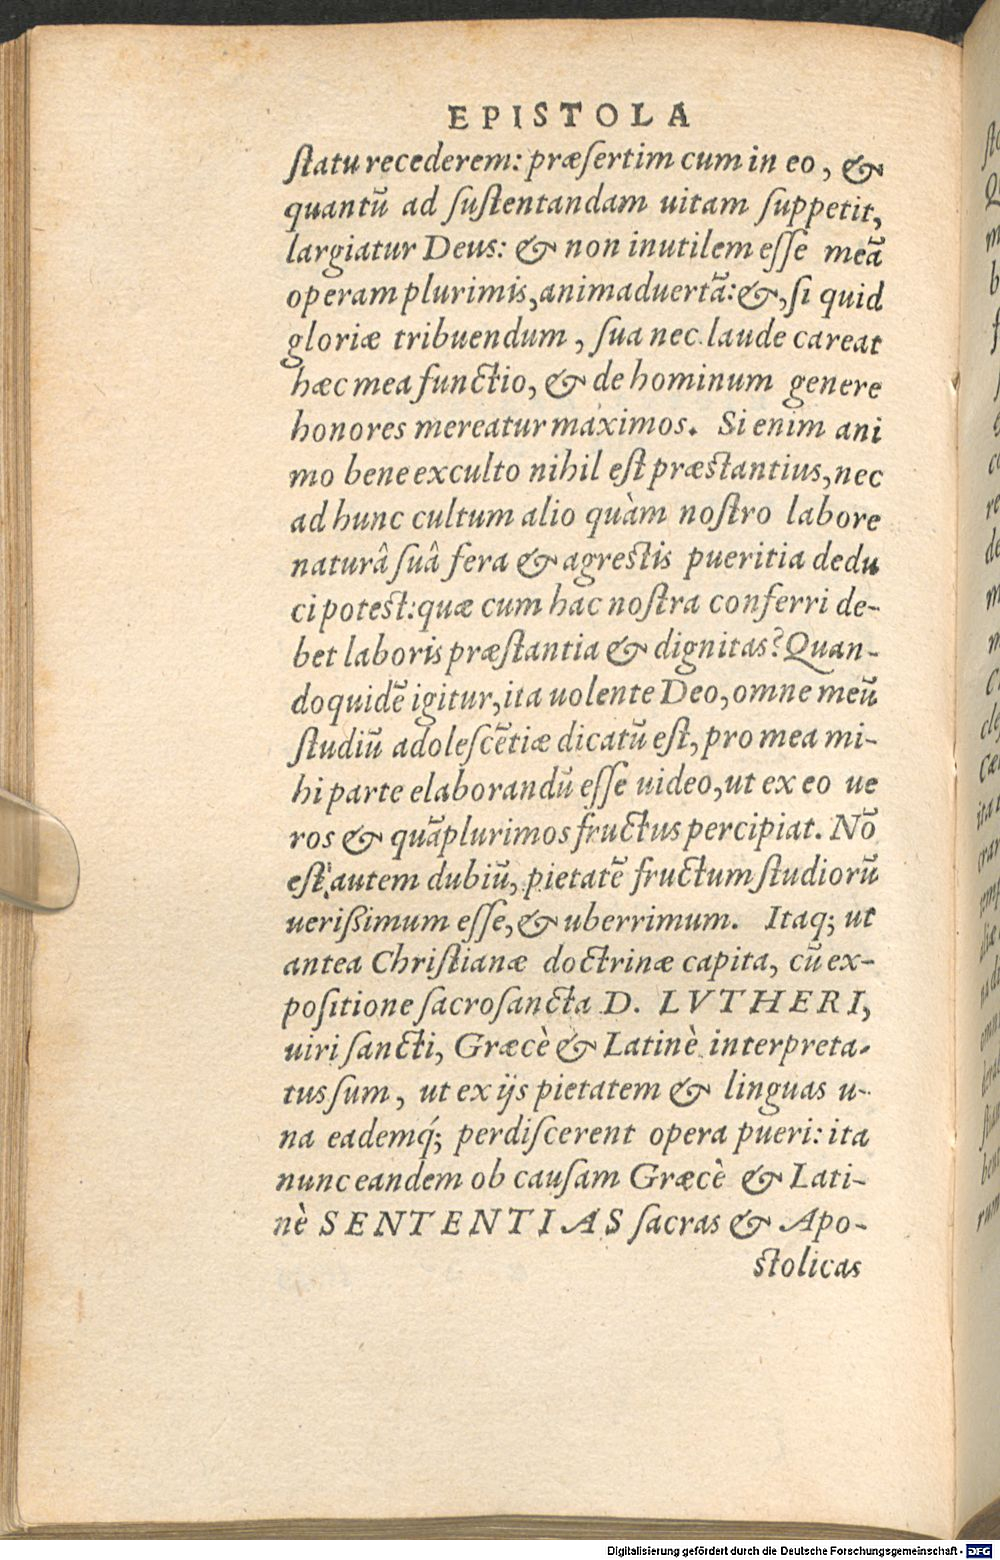 EPISTOLA
ſtatu recederem: præſertim cum in eo, &
quantũ ad ſuſtentandam uitam ſuppetit,
largiatur Deus: & non inutilem eſſe meã
operam plurimis, animaduertã: &, ſi quid
gloriæ tribuendum, ſua nec laude careat
hæc mea functio, & de hominum genere
honores mereatur maximos. Si enim ani
mo bene exculto nihil eſt præstantius, nec
ad hunc cultum alio quàm noſtro labore
naturâ ſuâ fera & agrestis pueritia dedu
ci potest: quæ cum hac noſtra conferri de-
bet laboris præſtantia & dignitas? Quan-
doquidẽ igitur, ita uolente Deo, omne meũ
ſtudiũ adoleſcẽtiæ dicatũ eſt, pro mea mi-
hi parte elaborandũ eſſe uideo, ut ex eo ue
ros & quãplurimos fructus percipiat. Nõ
eſt autem dubiũ, pietatẽ fructum ſtudiorũ
uerißimum eſſe, & uberrimum. Itaq; ut
antea Chriſtianæ doctrinæ capita, cũ ex-
poſitione ſacroſancta D. LVTHERI,
uiri ſancti, Græcè & Latinè interpreta-
tus ſum, ut ex ijs pietatem & linguas u-
na eademq́; perdiſcerent opera pueri: ita
nunc eandem ob cauſam Græcè & Lati-
nè SENTENTIAS ſacras & Apo-
stolicas
Digitalisierung gefördert durch die Deutsche Forschungsgemeinschaft - DFG